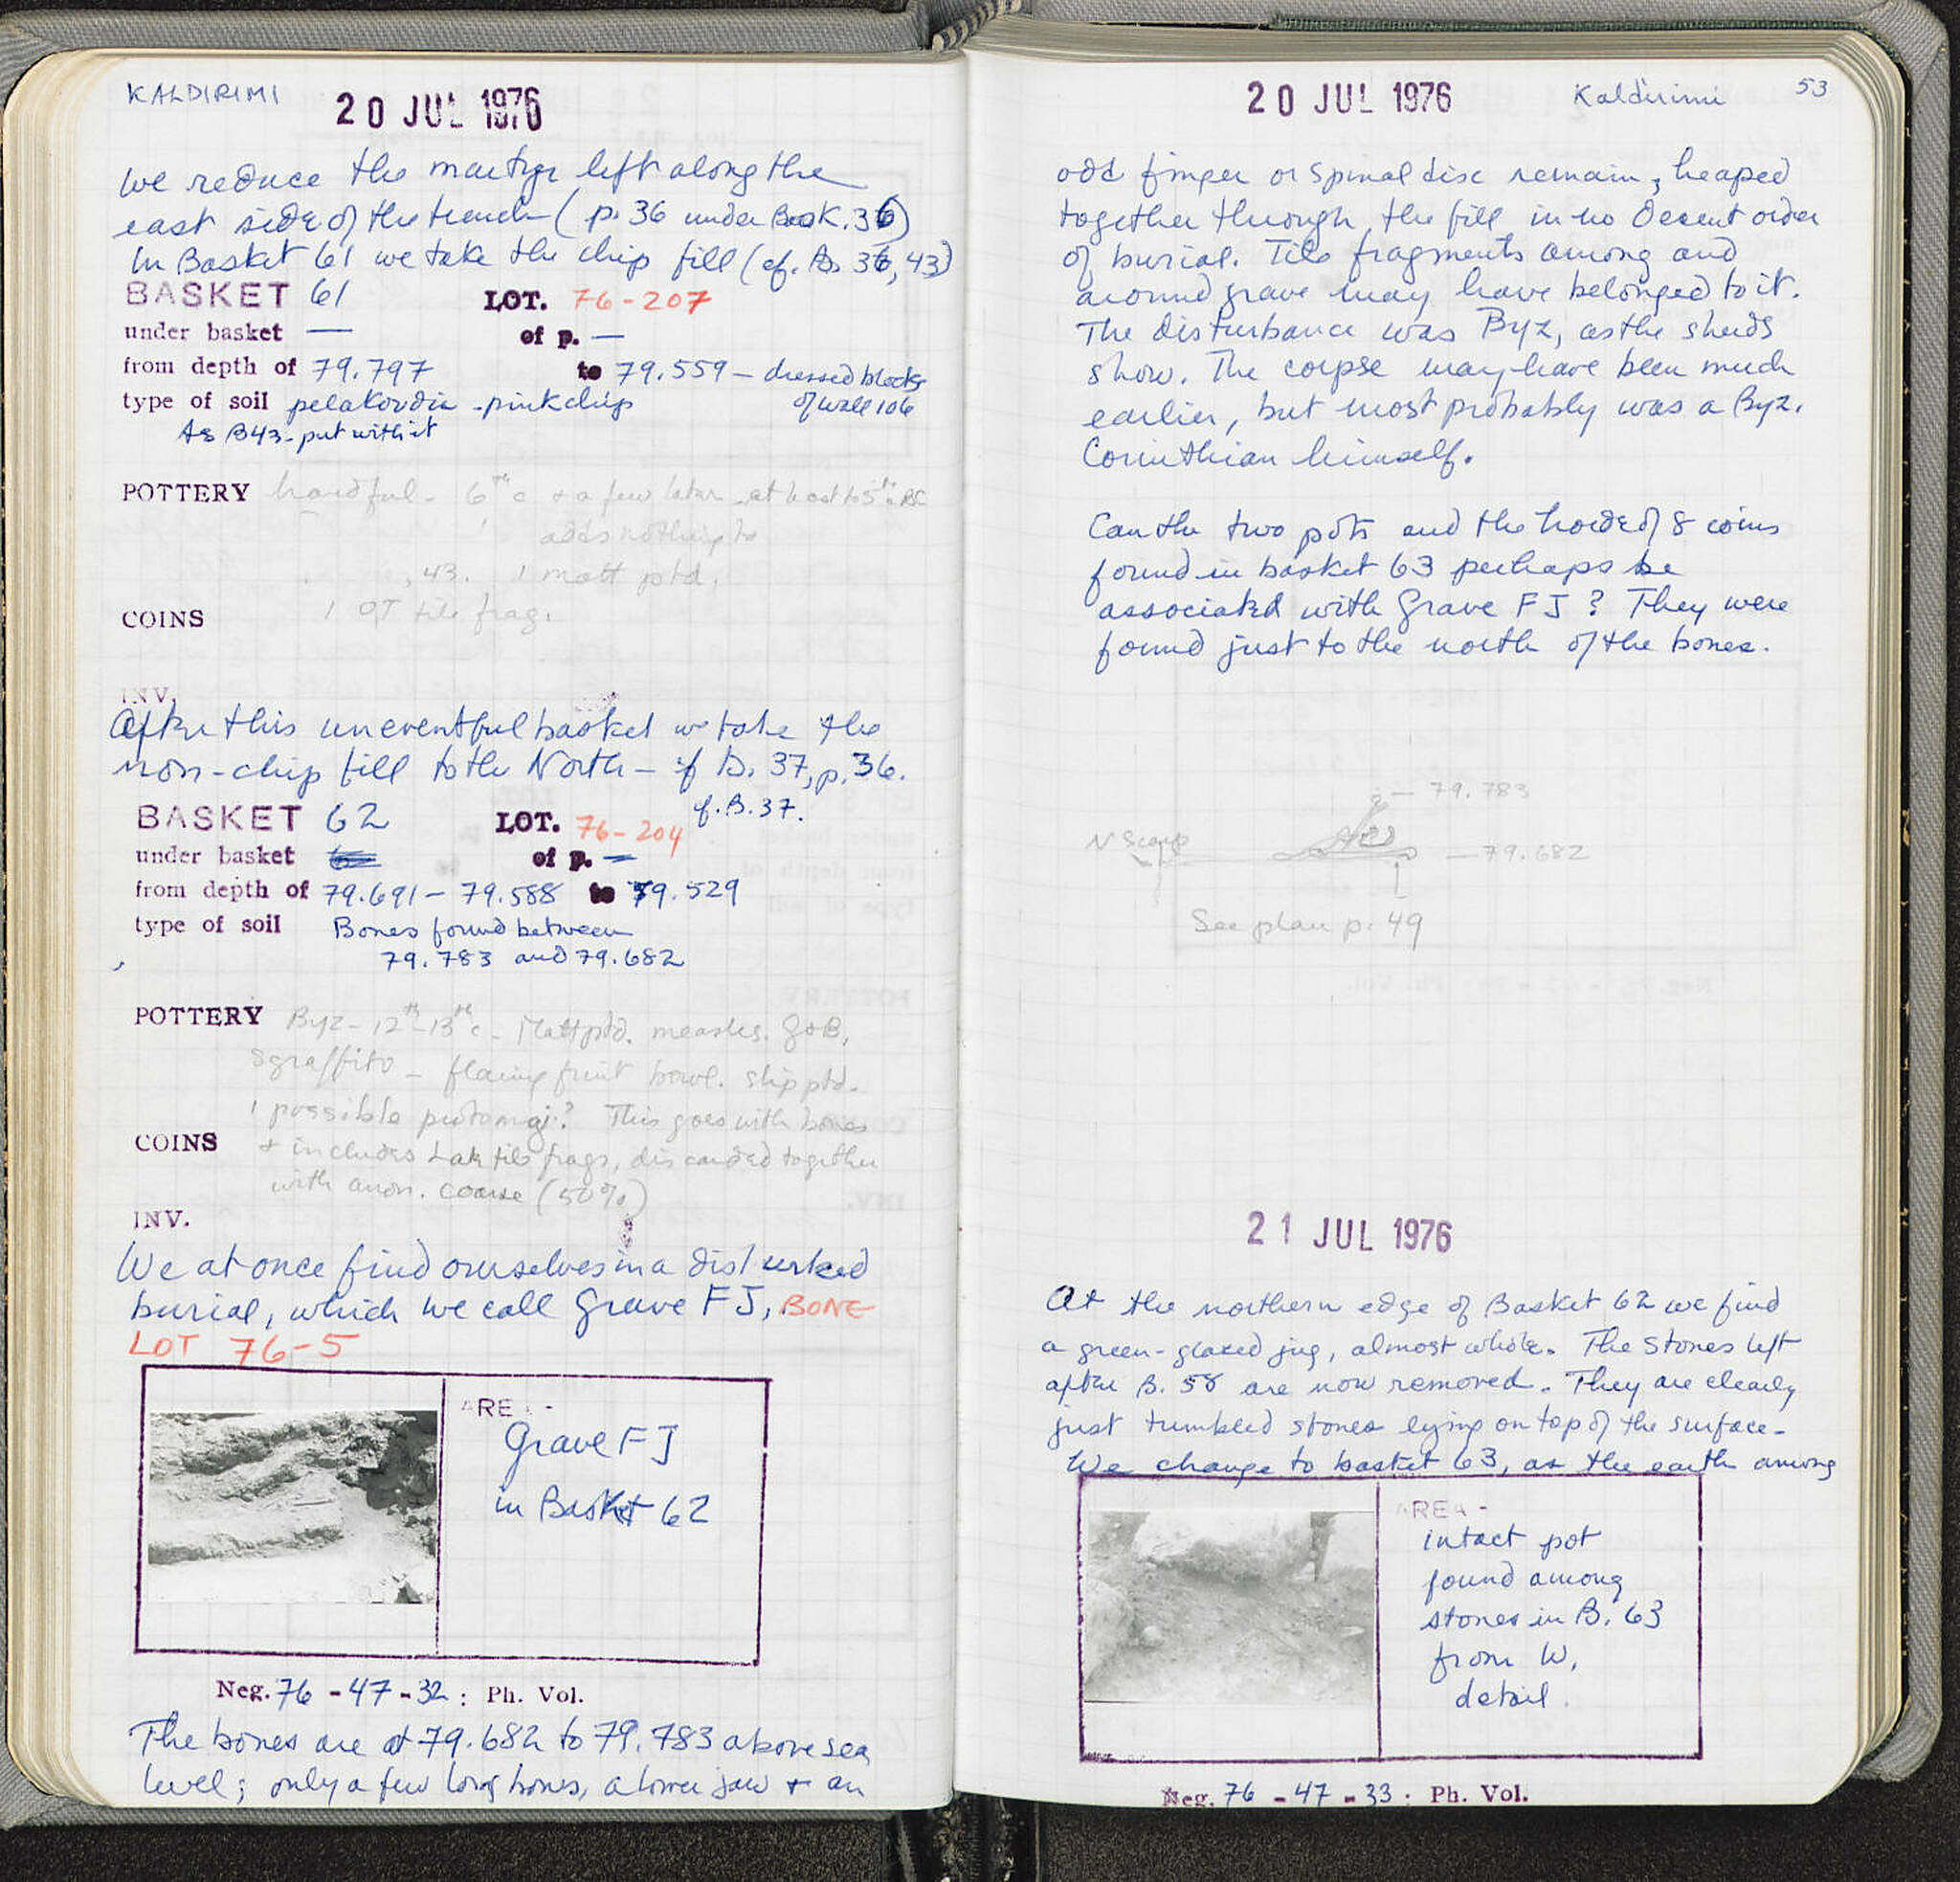 KALDIRIMI
20 JUL 1976
We reduce the martyr left along the
east side of the trench (p. 36 under Bask. 36)
In Basket 61 we take the chip fill (cf. B. 36, 43)
BASKET 61 LOT. 76-207
under basket — of p. —
from depth of 79.797 to 79.559 – dressed blocks
of wall 106
type of soil pelakoudia - pink chip
As B43 - put with it
POTTERY handful - 6th c + a few later at least to 5th c BC
adds nothing to
43. 1 matt ptd,
1 OT tile frag.
COINS
INV.
After this uneventful basket we take the
non-chip fill to the North – cf B. 37, p. 36.
cf. B. 37.
BASKET 62 LOT. 76-204
under basket of p. —
from depth of 79.691 – 79.588 to 79.529
type of soil Bones found between
79.783 and 79.682
POTTERY Byz - 12th-13th c - Matt ptd. measles. G+B,
Sgraffito - flaring fruit bowl. slip ptd.
1 possible protomaj.? This goes with bones
COINS + includes Lak tile frags, discarded together
with anon. coarse (50%)
INV.
We at once find ourselves in a disturbed
burial, which we call Grave FJ, BONE
LOT 76-5
AREA -
Grave FJ
in Basket 62
Neg. 76 - 47 - 32 : Ph. Vol.
The bones are at 79.682 to 79.783 above sea
level; only a few long bones, a lower jaw + an
20 JUL 1976
Kaldirimi
53
odd finger or spinal disc remain, heaped
together through the fill in no decent order
of burial. Tile fragments among and
around grave may have belonged to it.
The disturbance was Byz, as the sherds
show. The corpse may have been much
earlier, but most probably was a Byz.
Corinthian himself.
Can the two pots and the horde of 8 coins
found in basket 63 perhaps be
associated with Grave FJ? They were
found just to the north of the bones.
— 79.783
N Scarp
— 79.682
See plan p. 49
21 JUL 1976
At the northern edge of Basket 62 we find
a green-glazed jug, almost whole. The stones left
after B. 58 are now removed. They are clearly
just tumbled stones lying on top of the surface -
We change to basket 63, as the earth among
AREA -
intact pot
found among
stones in B. 63
from W,
detail.
Neg. 76 - 47 - 33 : Ph. Vol.